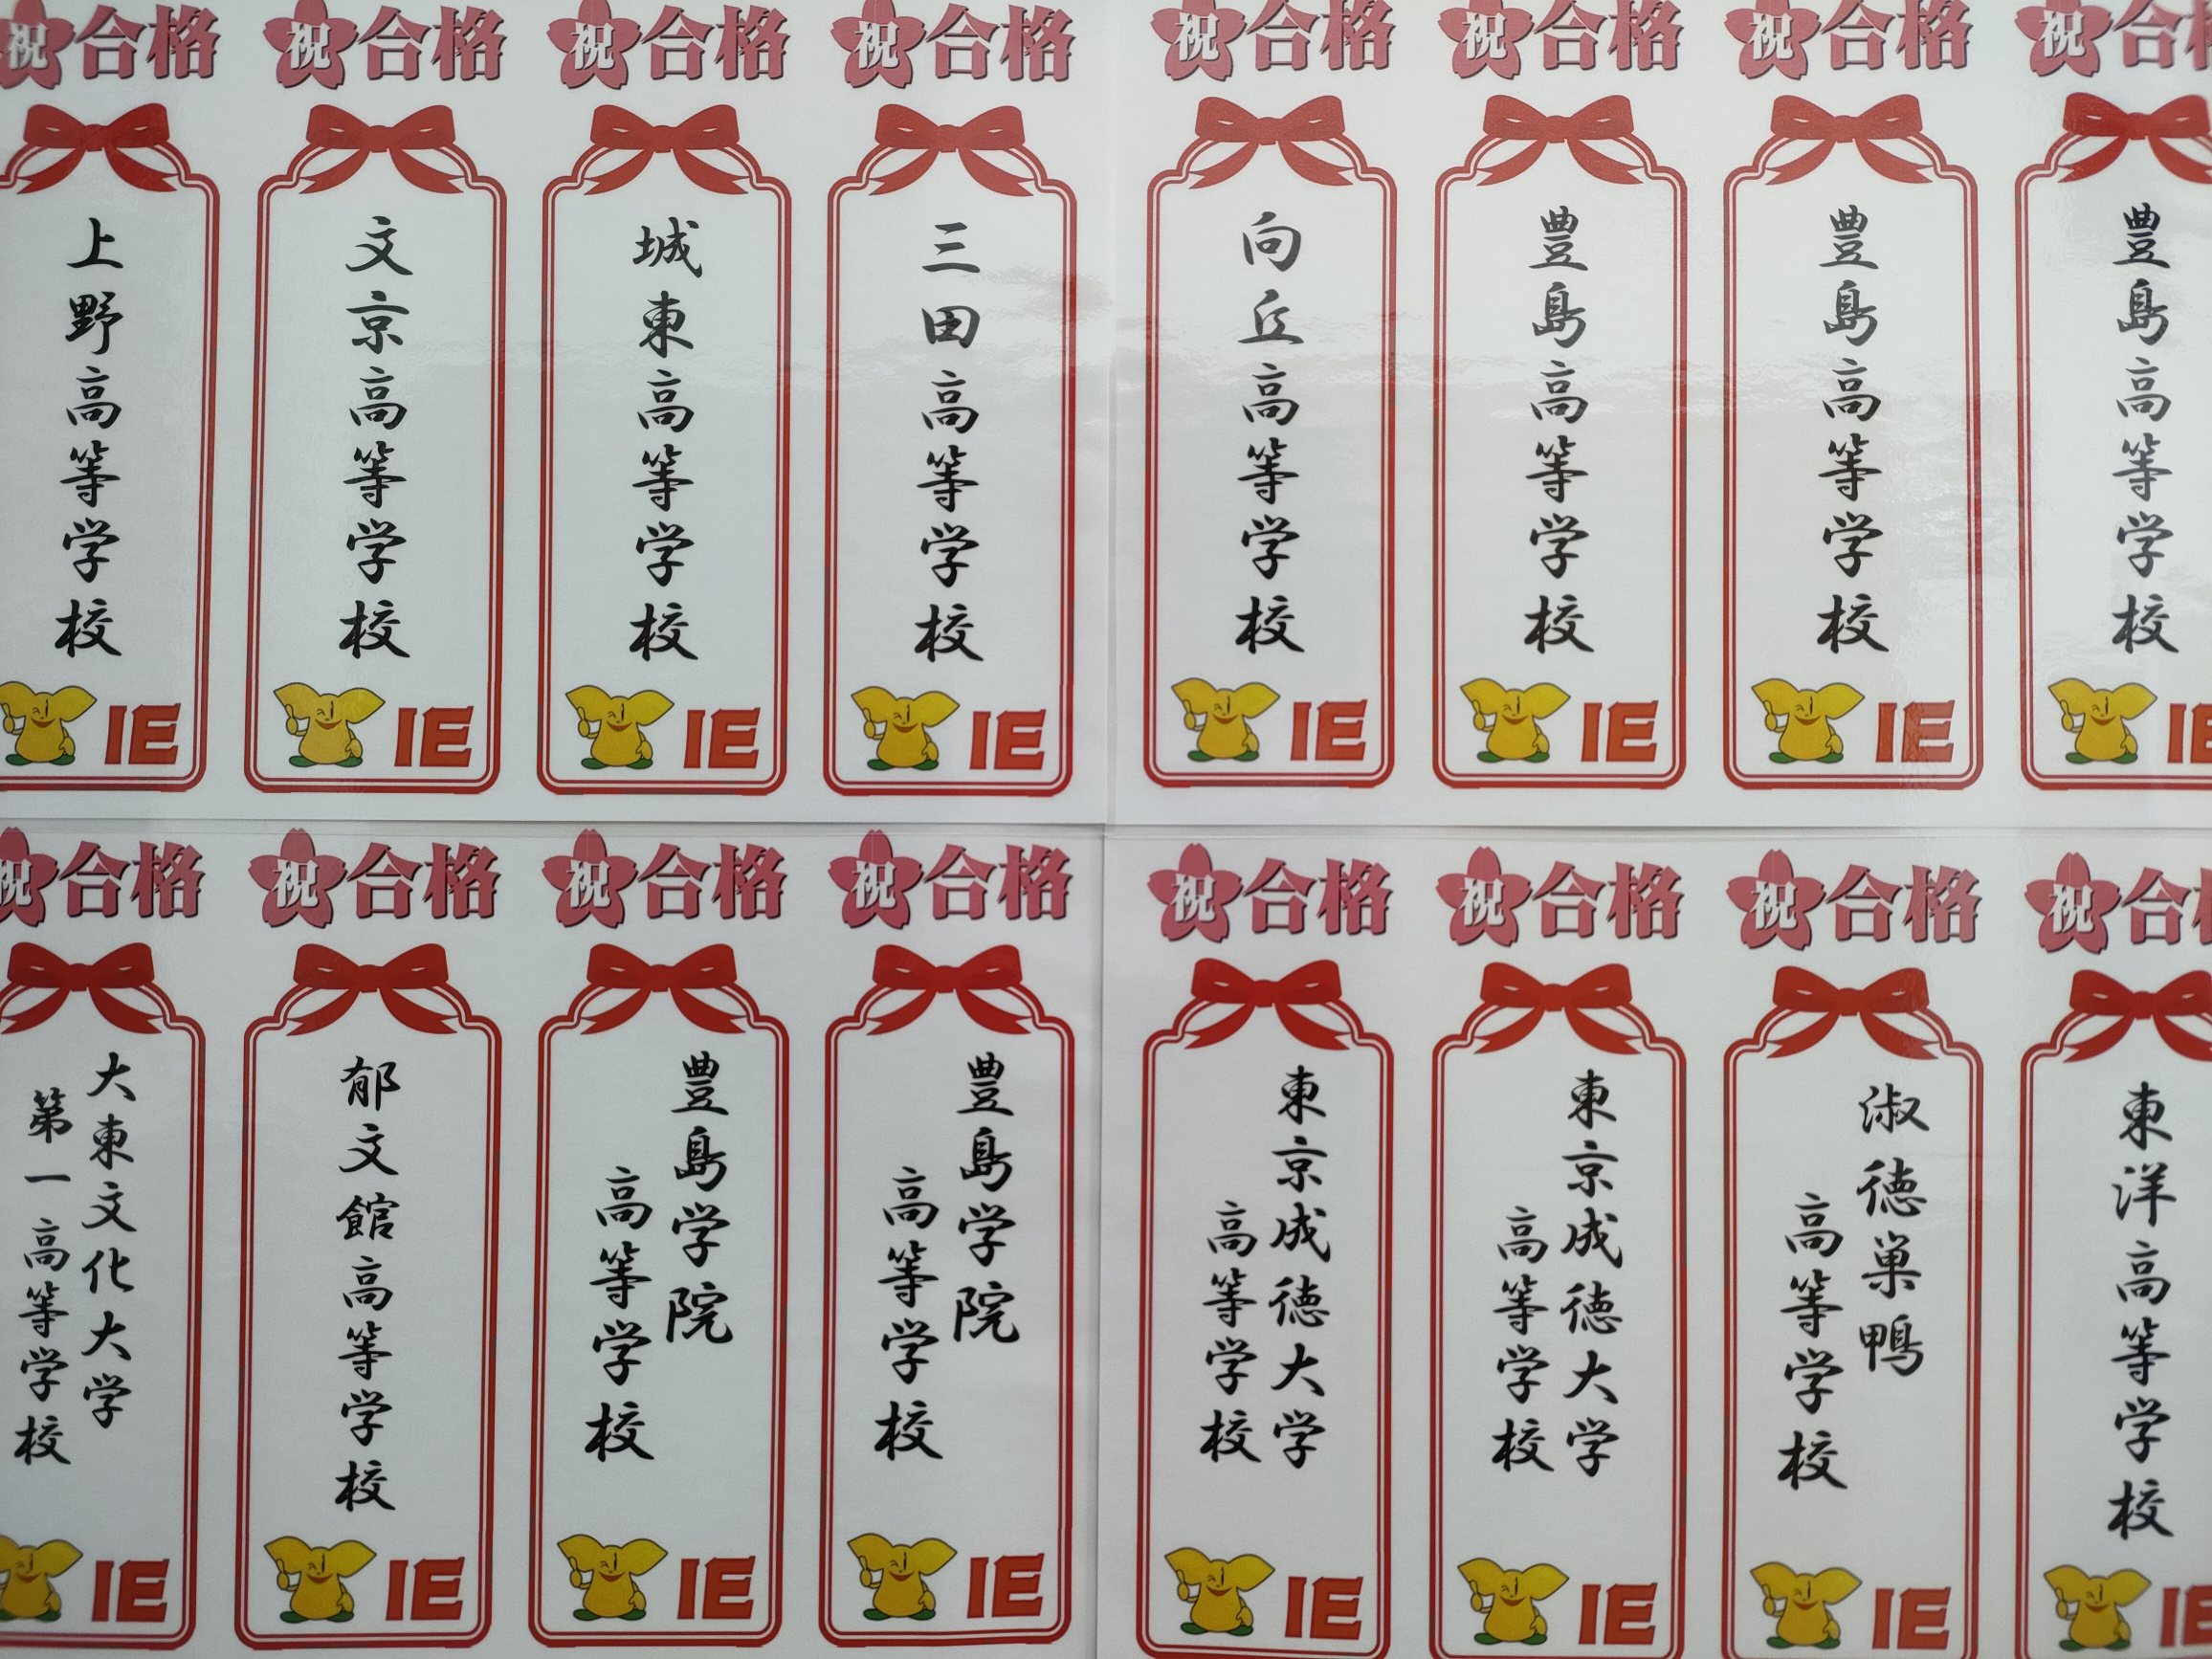 祝合格
上野高等学校
IE
祝合格
文京高等学校
IE
祝合格
城東高等学校
IE
祝合格
三田高等学校
IE
祝合格
向丘高等学校
IE
祝合格
豊島高等学校
IE
祝合格
豊島高等学校
IE
祝合
豊島高等学校
IE
祝合格
大東文化大学
第一高等学校
IE
祝合格
郁文館高等学校
IE
祝合格
豊島学院
高等学校
IE
祝合格
豊島学院
高等学校
IE
祝合格
東京成徳大学
高等学校
IE
祝合格
東京成徳大学
高等学校
IE
祝合格
淑徳巣鴨
高等学校
IE
祝合
東洋高等学校
IE